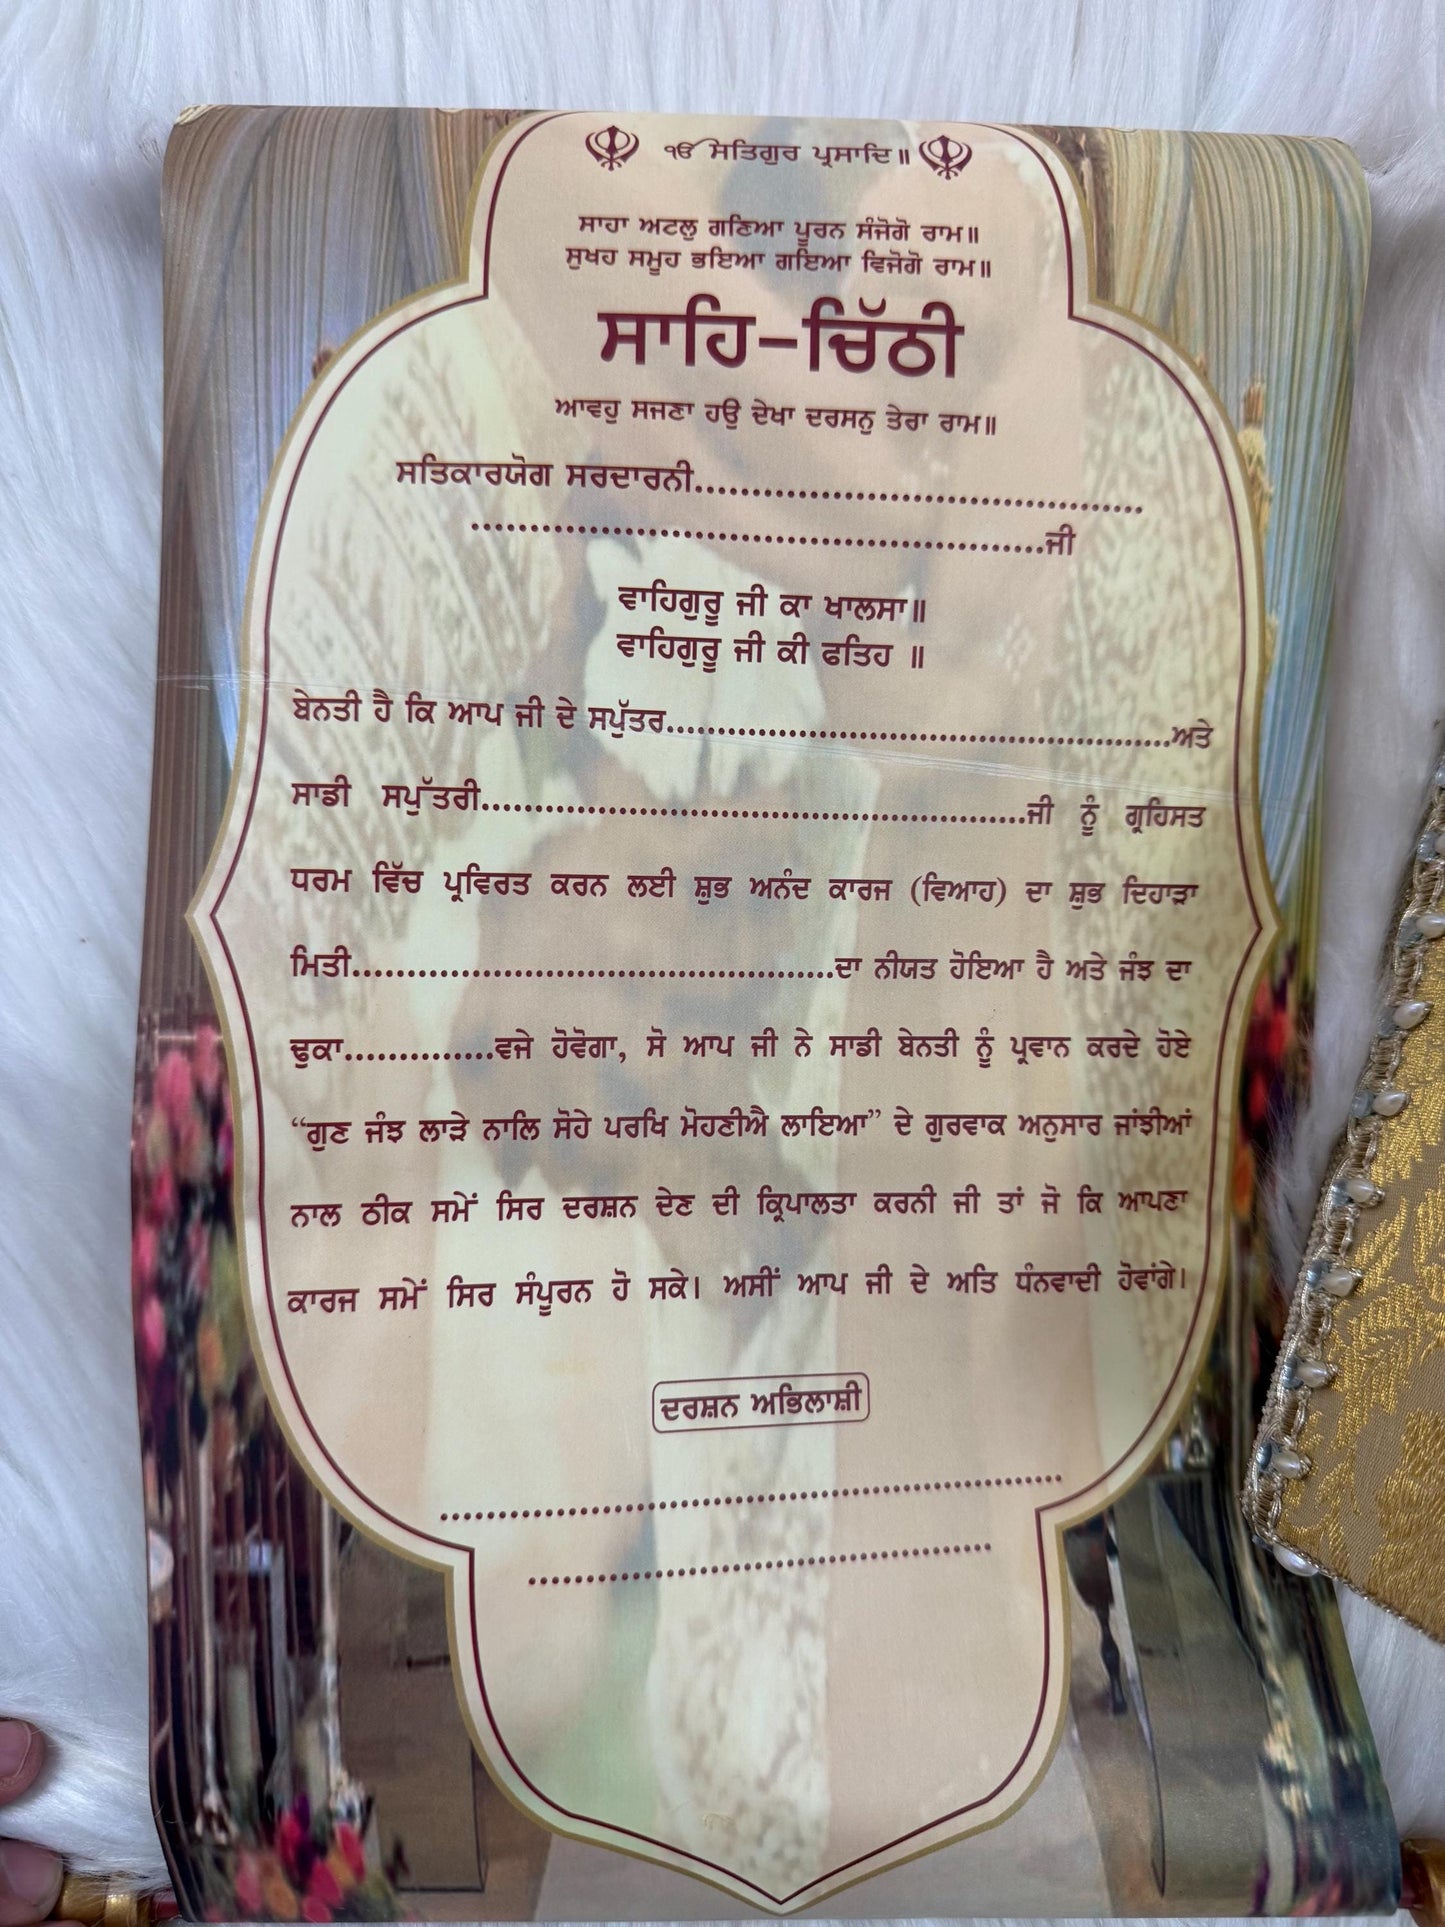 ੴ ਸਤਿਗੁਰ ਪ੍ਰਸਾਦਿ॥
ਸਾਹਾ ਅਟਲੁ ਗਣਿਆ ਪੂਰਨ ਸੰਜੋਗੋ ਰਾਮ॥
ਸੁਖਹ ਸਮੂਹ ਭਇਆ ਗਇਆ ਵਿਜੋਗੋ ਰਾਮ॥
ਸਾਹਿ-ਚਿੱਠੀ
ਆਵਹੁ ਸਜਣਾ ਹਉ ਦੇਖਾ ਦਰਸਨੁ ਤੇਰਾ ਰਾਮ॥
ਸਤਿਕਾਰਯੋਗ ਸਰਦਾਰਨੀ.......................................
..................................................ਜੀ
ਵਾਹਿਗੁਰੂ ਜੀ ਕਾ ਖਾਲਸਾ॥
ਵਾਹਿਗੁਰੂ ਜੀ ਕੀ ਫਤਿਹ ॥
ਬੇਨਤੀ ਹੈ ਕਿ ਆਪ ਜੀ ਦੇ ਸਪੁੱਤਰ..................................................ਅਤੇ
ਸਾਡੀ ਸਪੁੱਤਰੀ..................................................ਜੀ ਨੂੰ ਗ੍ਰਹਿਸਤ
ਧਰਮ ਵਿੱਚ ਪ੍ਰਵਿਰਤ ਕਰਨ ਲਈ ਸ਼ੁਭ ਅਨੰਦ ਕਾਰਜ (ਵਿਆਹ) ਦਾ ਸ਼ੁਭ ਦਿਹਾੜਾ
ਮਿਤੀ..................................................ਦਾ ਨੀਯਤ ਹੋਇਆ ਹੈ ਅਤੇ ਜੰਝ ਦਾ
ਢੁਕਾ..............ਵਜੇ ਹੋਵੇਗਾ, ਸੋ ਆਪ ਜੀ ਨੇ ਸਾਡੀ ਬੇਨਤੀ ਨੂੰ ਪ੍ਰਵਾਨ ਕਰਦੇ ਹੋਏ
“ਗੁਣ ਜੰਝ ਲਾੜੇ ਨਾਲਿ ਸੋਹੇ ਪਰਖਿ ਮੋਹਣੀਐ ਲਾਇਆ” ਦੇ ਗੁਰਵਾਕ ਅਨੁਸਾਰ ਜਾਂਝੀਆਂ
ਨਾਲ ਠੀਕ ਸਮੇਂ ਸਿਰ ਦਰਸ਼ਨ ਦੇਣ ਦੀ ਕ੍ਰਿਪਾਲਤਾ ਕਰਨੀ ਜੀ ਤਾਂ ਜੋ ਕਿ ਆਪਣਾ
ਕਾਰਜ ਸਮੇਂ ਸਿਰ ਸੰਪੂਰਨ ਹੋ ਸਕੇ। ਅਸੀਂ ਆਪ ਜੀ ਦੇ ਅਤਿ ਧੰਨਵਾਦੀ ਹੋਵਾਂਗੇ।
ਦਰਸ਼ਨ ਅਭਿਲਾਸ਼ੀ
..................................................
.......................................